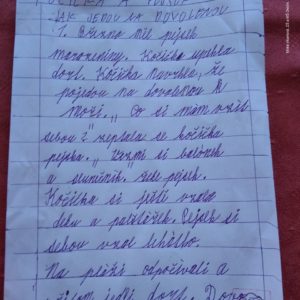 JAK JEDOU NA DOVOLENOU
7. března měl pejsek
narozeniny. Kočička upekla
dort. Kočička navrhla, že
pojedou na dovolenou k
moři. „Co si mám vzít
sebou?" zeptala se kočička
pejska. „Vezmi si balónek
a slunečník. řekl pejsek.
Kočička si ještě vzala
deku a polštářek. Pejsek si
sebou vzal lehátko.
Na pláži odpočívali a
jedli dort.